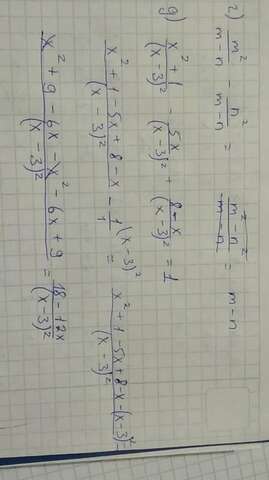 2) m²/(m-n) - n²/(m-n) = (m²-n²)/(m-n) = m-n
g) (x²+1)/(x-3)² - 5x/(x-3)² + (8-x)/(x-3)² = 1
(x²+1-5x+8-x)/(x-3)² - 1/1 (x-3)² = (x²+1-5x+8-x-(x-3)²)/(x-3)² =
(x²+9-6x-x²-6x+9)/(x-3)² = (18-12x)/(x-3)²